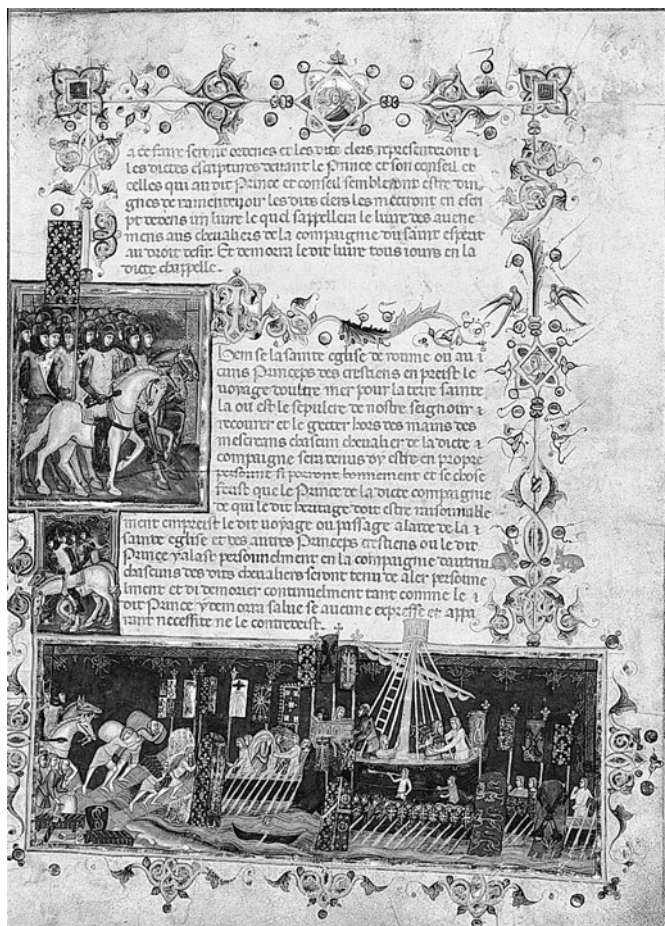 a ce faire seront ordenes et les dits clers representeront ⁊
les dictes escriptures deuant le Prince et son conseil et
celles qui au dit Prince et conseil sembleront estre din
gnes de ramenteuoir les dits clers les mectront en escri
pt dedens un liure le quel sappellera le liure des auene
mens aus cheualiers de la compaignie du saint esperit
au droit desir. Et demorra le dit liure tous iours en la
dicte chappelle.
Item se la sainte eglise de roume ou au ⁊
cuns Princeps des crestiens enpreist le
uoyage doultre mer pour la terre sainte
la ou est le sepulcre de nostre seignour ⁊
recourer et le gecter hors des mains des
mescreans chascun cheualier de la dicte ⁊
compaignie sera tenus dy estre en propre
personne si porront bonnement et se chose
feust que le Prince de la dicte compaignie
de qui le dit heritage doit estre raisonnable
ment empreist le dit uoyage ou passage a laide de la ⁊
sainte eglise et des autres Princeps crestiens ou le dit
Prince y alast personnelment en la compaignie dautrui
chascuns des dits cheualiers seront tenu de aler personne
lment et di demorer continuelment tant comme le ⁊
dit Prince y demorra salue se aucune expresse et appa
rant necessite ne le contredeist.